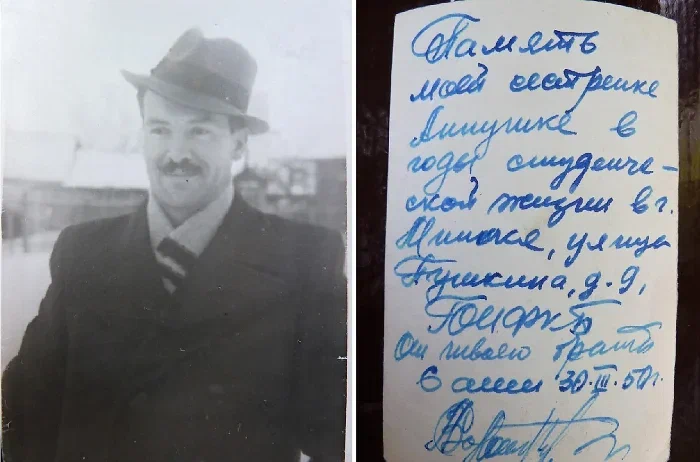 Память
моей сестренке
Аннушке в
годы студенче-
ской жизни в г.
Минске, улица
Пушкина, д. 9,
От твоего брата
30.III.50 г.